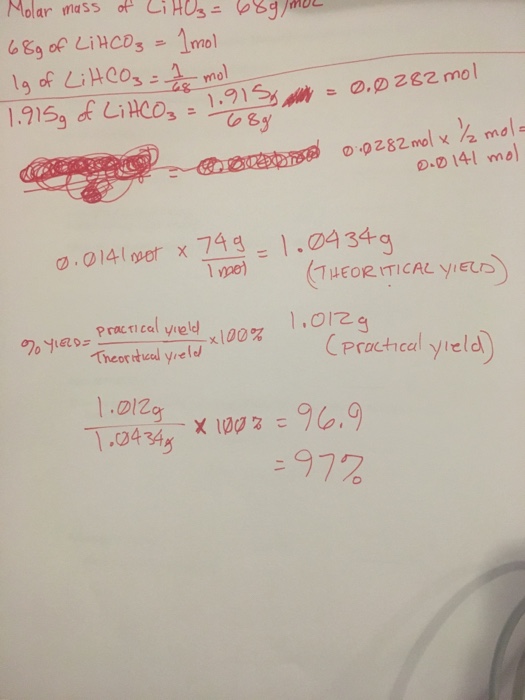 Molar mass of LiHO3 = 68g/mol
68g of LiHCO3 = 1mol
1g of LiHCO3 = 1/68 mol
1.915g of LiHCO3 = 1.915g/68g = 0.0282 mol
0.0282mol x 1/2 mol =
0.0141 mol
0.0141 mol x 74g/1mol = 1.0434g
(THEORITICAL YIELD)
% YIELD = practical yield/Theoritical yield x100%
1.012g
(practical yield)
1.012g/1.0434g x 100% = 96.9
= 97%